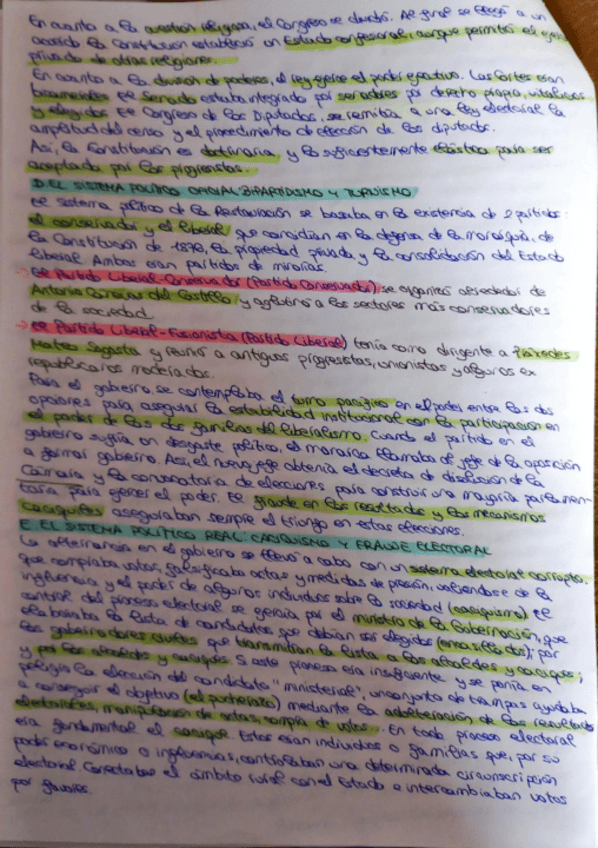 En cuanto a la cuestión religiosa, el Congreso se dividió. Al final se llegó a un
acuerdo la Constitución estableció un Estado confesional, aunque permitió el ejer
privado de otras religiones.
En cuanto a la división de poderes, el rey ejerce el poder ejecutivo. Las Cortes eran
bicamerales el Senado estaba integrado por senadores por derecho propio, vitalicios
y elegidos El Congreso de los Diputados, se remitía a una ley electoral la
amplitud del censo y el procedimiento de elección de los diputados.
Así, la Constitución es doctrinaria, y lo suficientemente elástica para ser
aceptada por los progresistas.
D. EL SISTEMA POLÍTICO OFICIAL: BIPARTIDISMO Y TURNISMO
El sistema político de la Restauración se basaba en la existencia de 2 partidos:
el conservador y el liberal, que coincidían en la defensa de la monarquía, de
la Constitución de 1876, la propiedad privada y la consolidación del Estado
liberal. Ambos eran partidos de minorías.
→ El Partido Liberal-Conservador (Partido Conservador), se organizó alrededor de
Antonio Cánovas del Castillo y aglutinó a los sectores más conservadores
de la sociedad.
→ El Partido Liberal-Fusionista (Partido Liberal) tenía como dirigente a Práxedes
Mateo Sagasta y reunió a antiguos progresistas, unionistas y algunos ex
republicanos moderados.
Para el gobierno, se contemplaba el turno pacífico en el poder entre las dos
opciones para asegurar la estabilidad institucional con la participación en
el poder de las dos familias del liberalismo. Cuando el partido en el
gobierno sufría un desgaste político, el monarca llamaba al jefe de la oposición
a formar gobierno. Así, el nuevo jefe obtenía el decreto de disolución de la
Cámara y la convocatoria de elecciones para construir una mayoría parlamen-
taria para ejercer el poder. El fraude en los resultados y los mecanismos
caciquiles aseguraban siempre el triunfo en estas elecciones.
E. EL SISTEMA POLÍTICO REAL: CACIQUISMO Y FRAUDE ELECTORAL
La alternancia en el gobierno se llevó a cabo con un sistema electoral corrupto,
que compraba votos, falsificaba actas y medidas de presión, valiéndose de la
influencia y el poder de algunos individuos sobre la sociedad (caciquismo). El
control del proceso electoral se ejercía por el ministro de la Gobernación, que
elaboraba la lista de candidatos que debían ser elegidos (encasillados); por
los gobernadores civiles que transmitían la lista a los alcaldes y caciques;
y por los alcaldes y caciques. Si este proceso era insuficiente y se ponía en
peligro la elección del candidato "ministerial", un conjunto de trampas ayudaba
a conseguir el objetivo (el pucherazo) mediante la adulteración de los resultados
electorales, manipulación de actas, compra de votos... En todo proceso electoral
era fundamental el cacique. Estos eran individuos o familias que, por su
poder económico o influencias, controlaban una determinada circunscripción
electoral. Conectaba el ámbito rural con el Estado e intercambiaban votos
por favores.